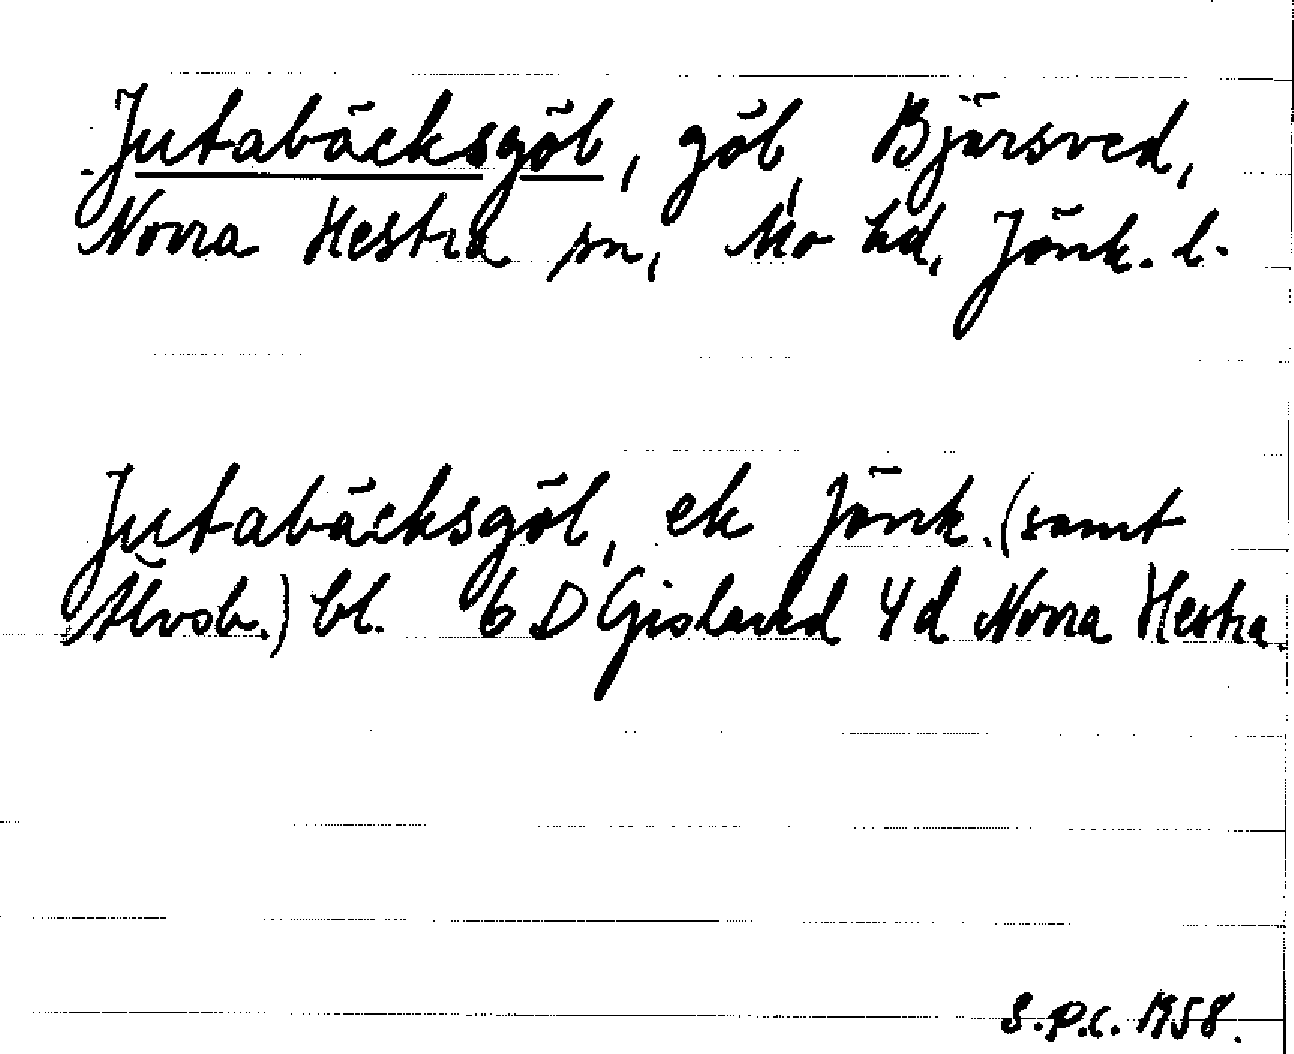 Jutabäcksgöl, göl, Bjärsved,
Norra Hestra sn, Mo hd, Jönk. l.
Jutabäcksgöl, ek Jönk. (samt
Älvsb.) bl. 6 D Gislaved 4d Norra Hestra.
S.P.C. 1958.